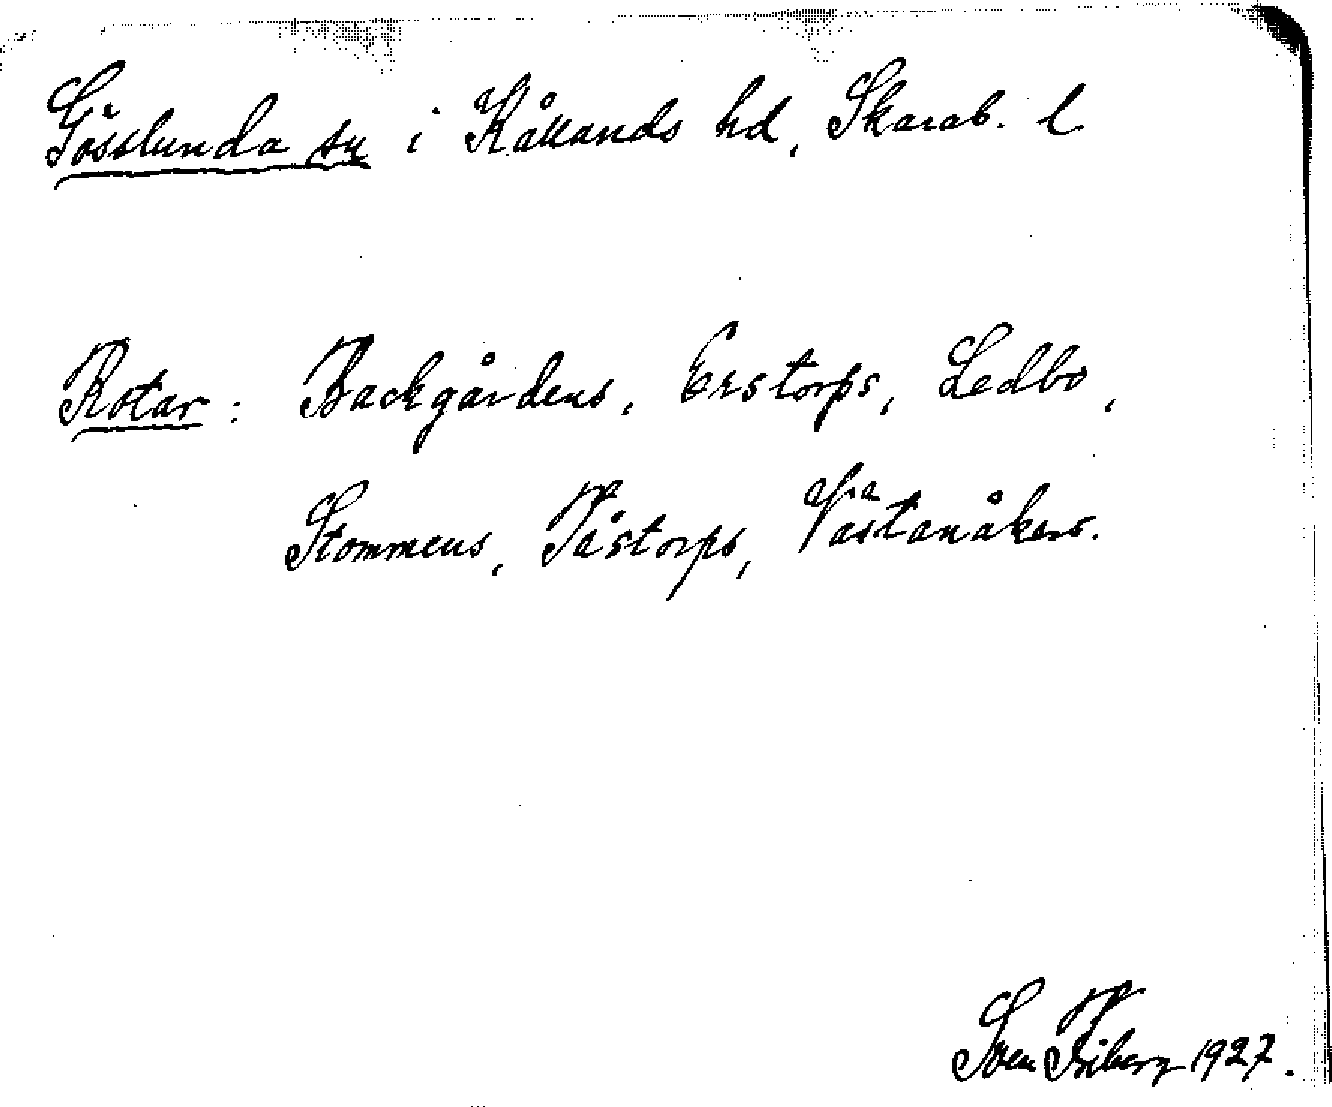 Gösslunda sn i Kållands hd, Skarab. l
Rotar: Backgårdens, Erstorps, Ledbo,
Stommens, Tåstorps, Västanåkers.
Sven Friberg 1927.